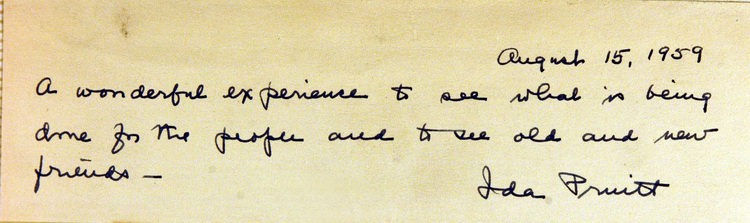 August 15, 1959
A wonderful experience to see what is being
done for the people and to see old and new
friends —
Ida Pruitt